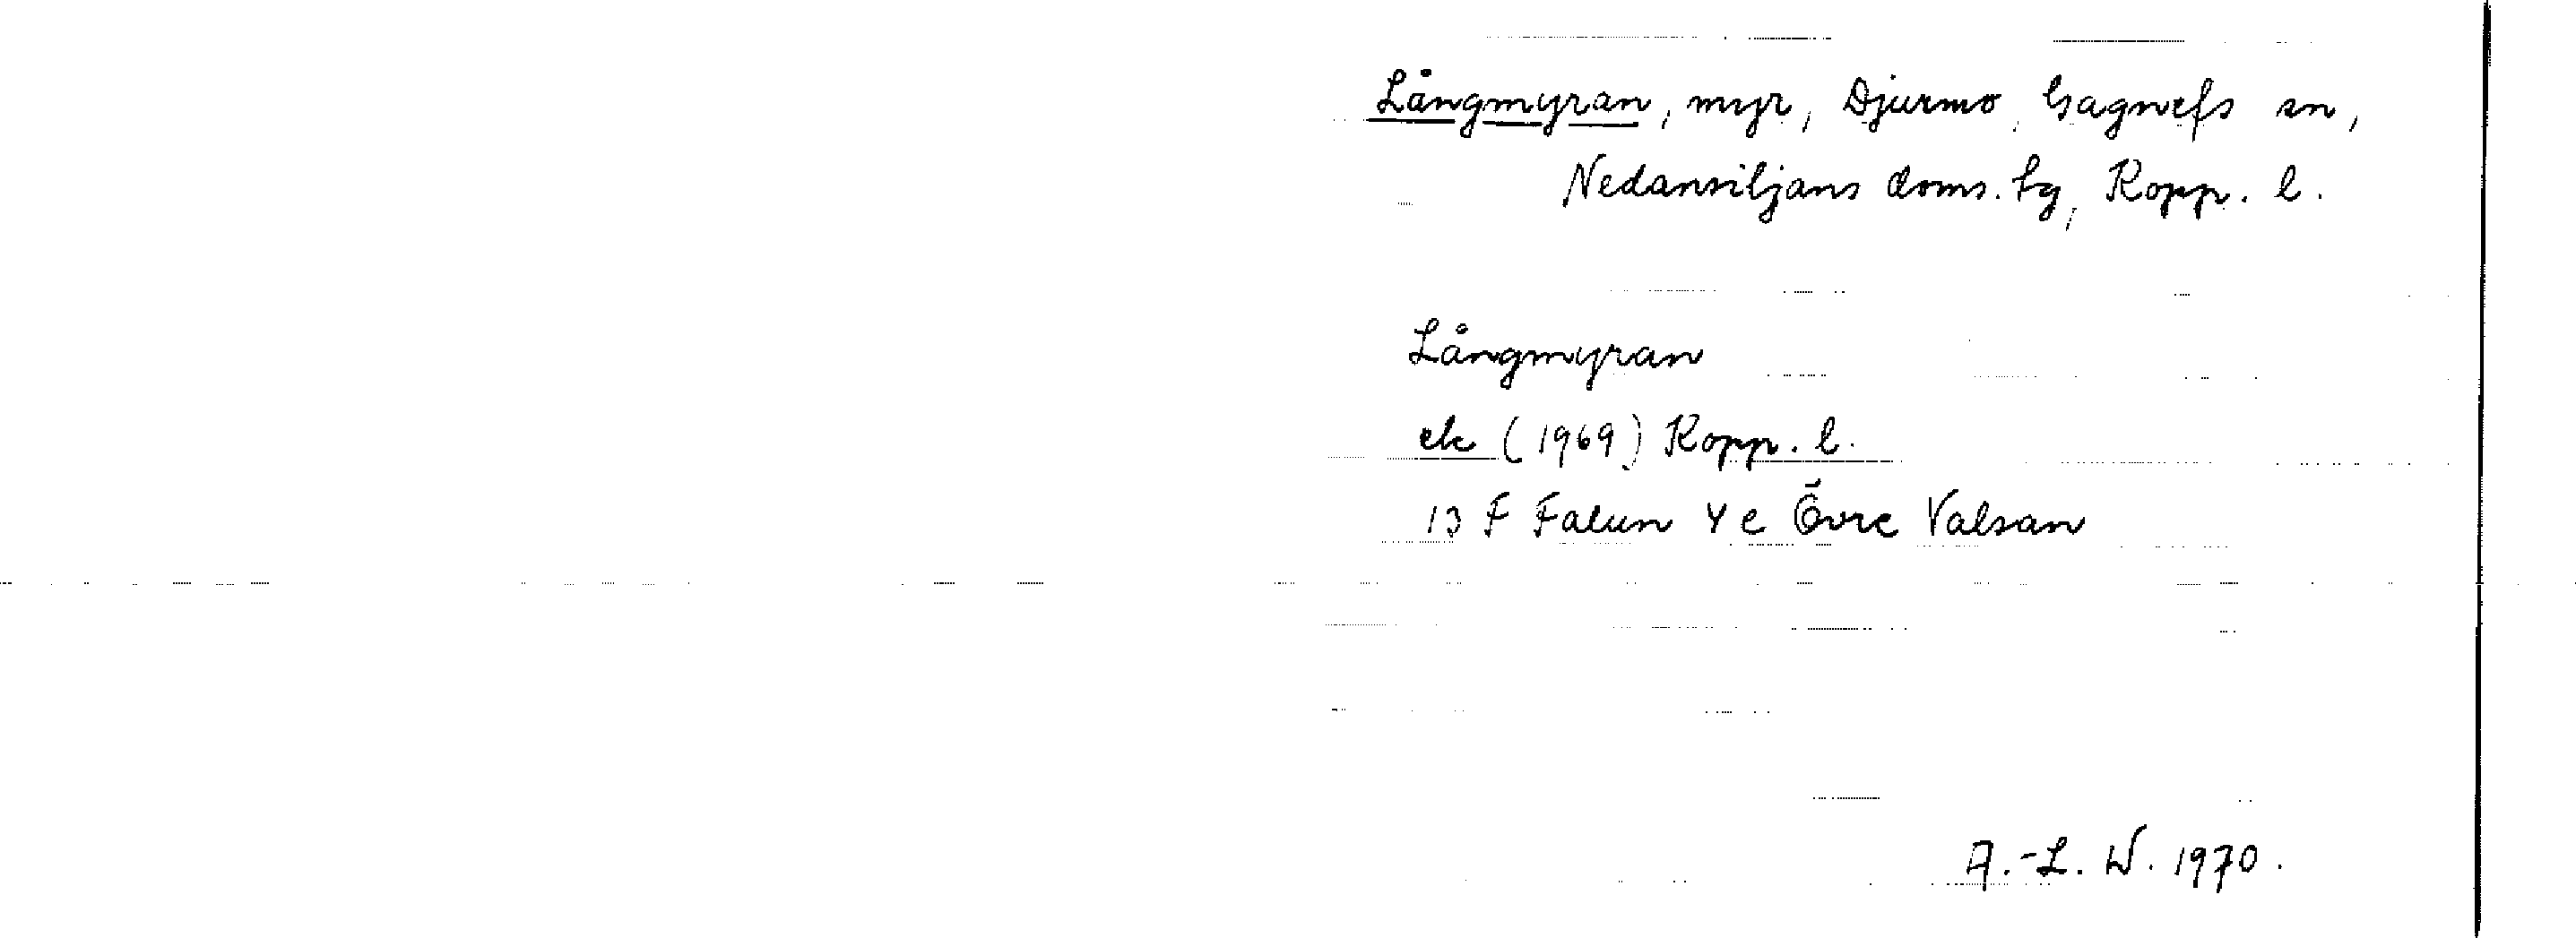 Långmyran, myr, Djurmo, Gagnefs sn,
Nedansiljans doms. tg, Kopp. l.
Långmyran
ek (1969) Kopp. l.
13 F Falun 4 e Övre Valsan
A.-L. W. 1970.